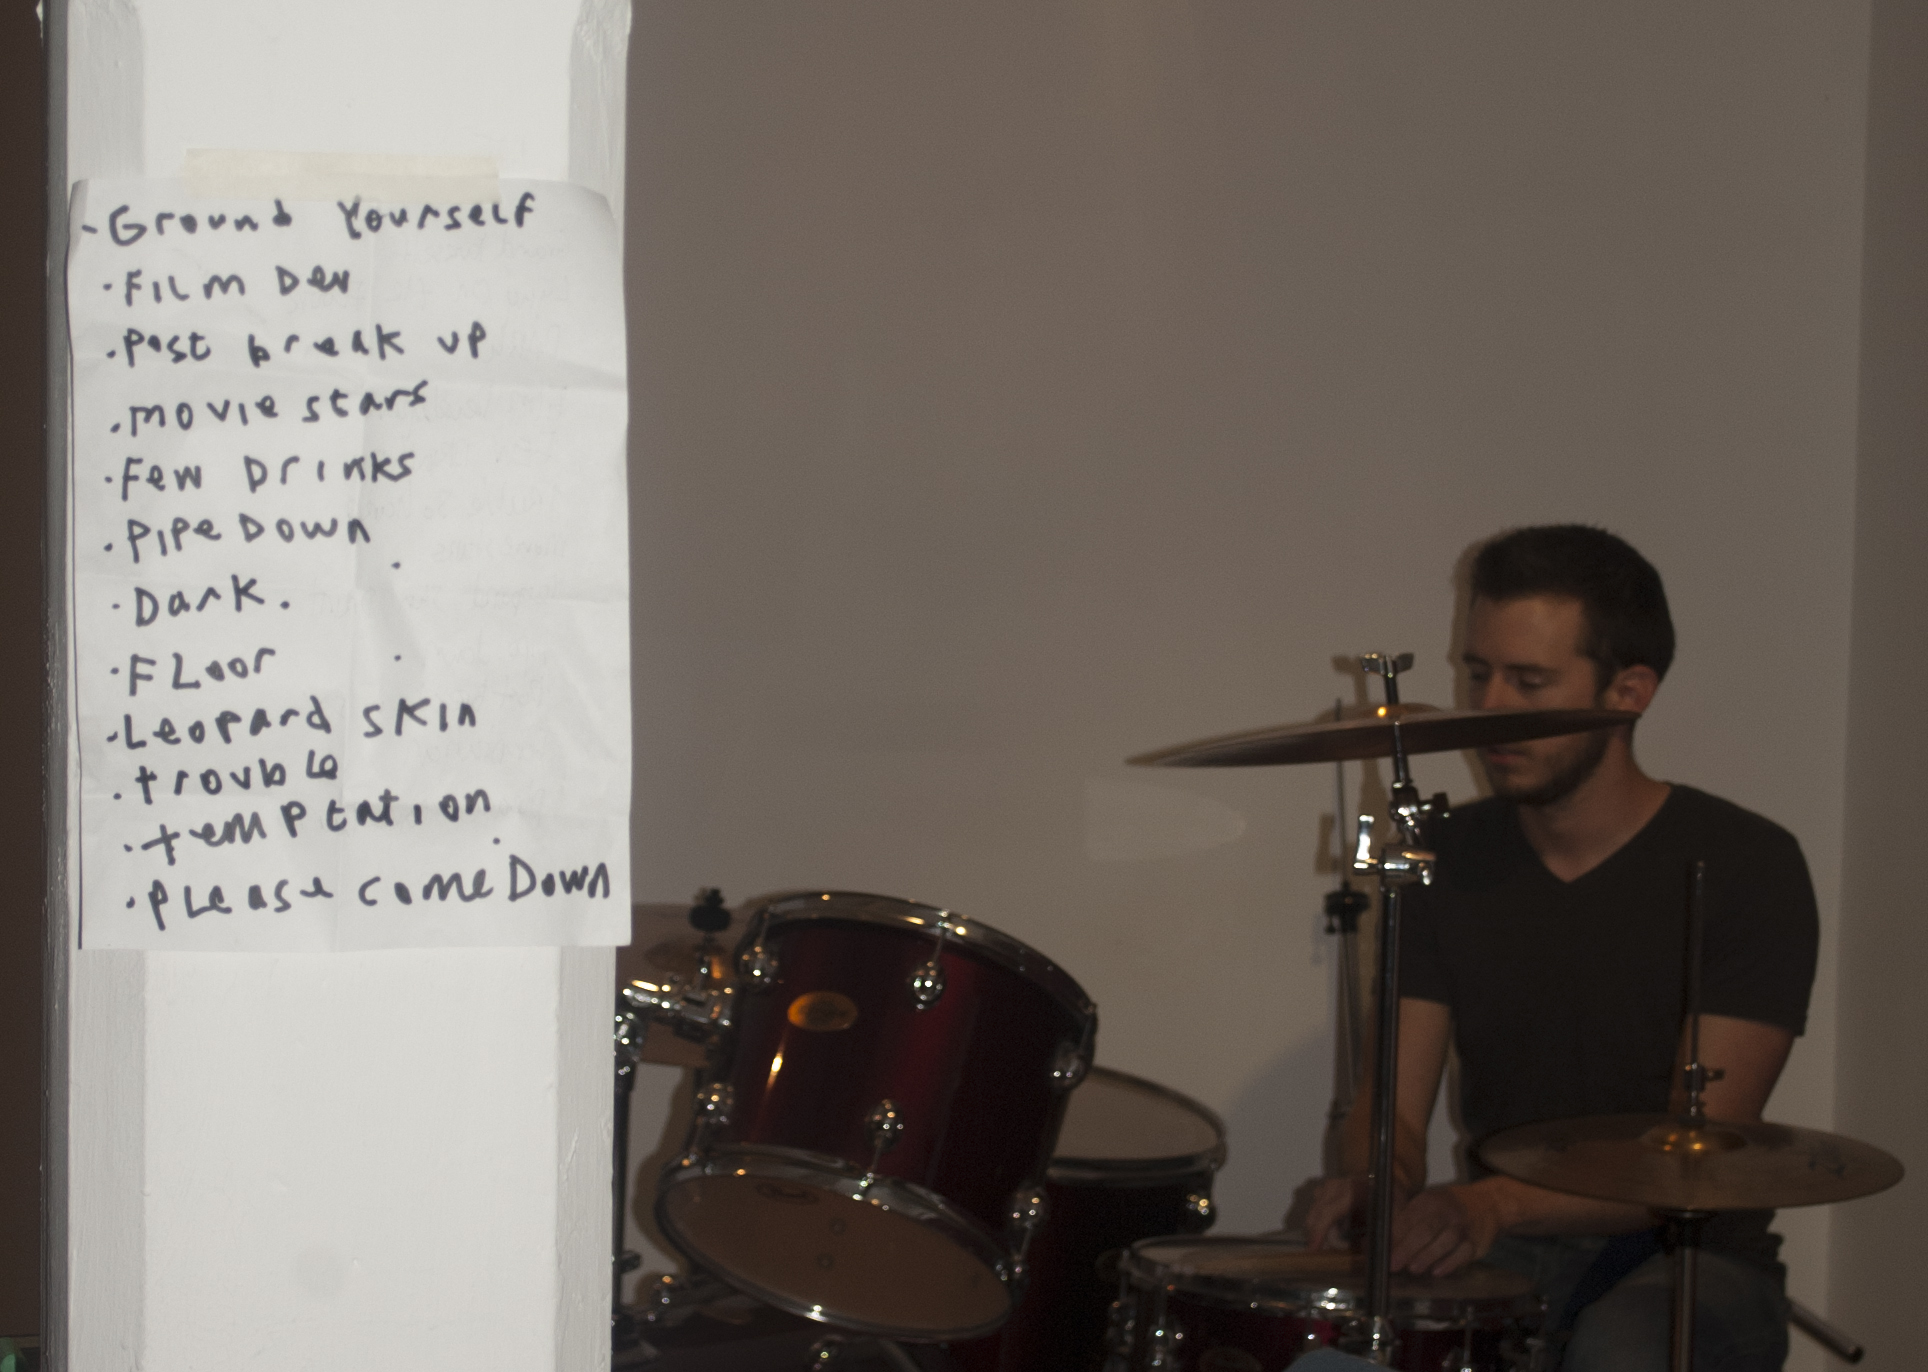 - Ground Yourself
· FILM Dev
· Post break up
· movie stars
· Few Drinks
· PIPe Down
· Dark.
· FLoor
· Leopard skin
· trouble
· temptation
· PLease come Down